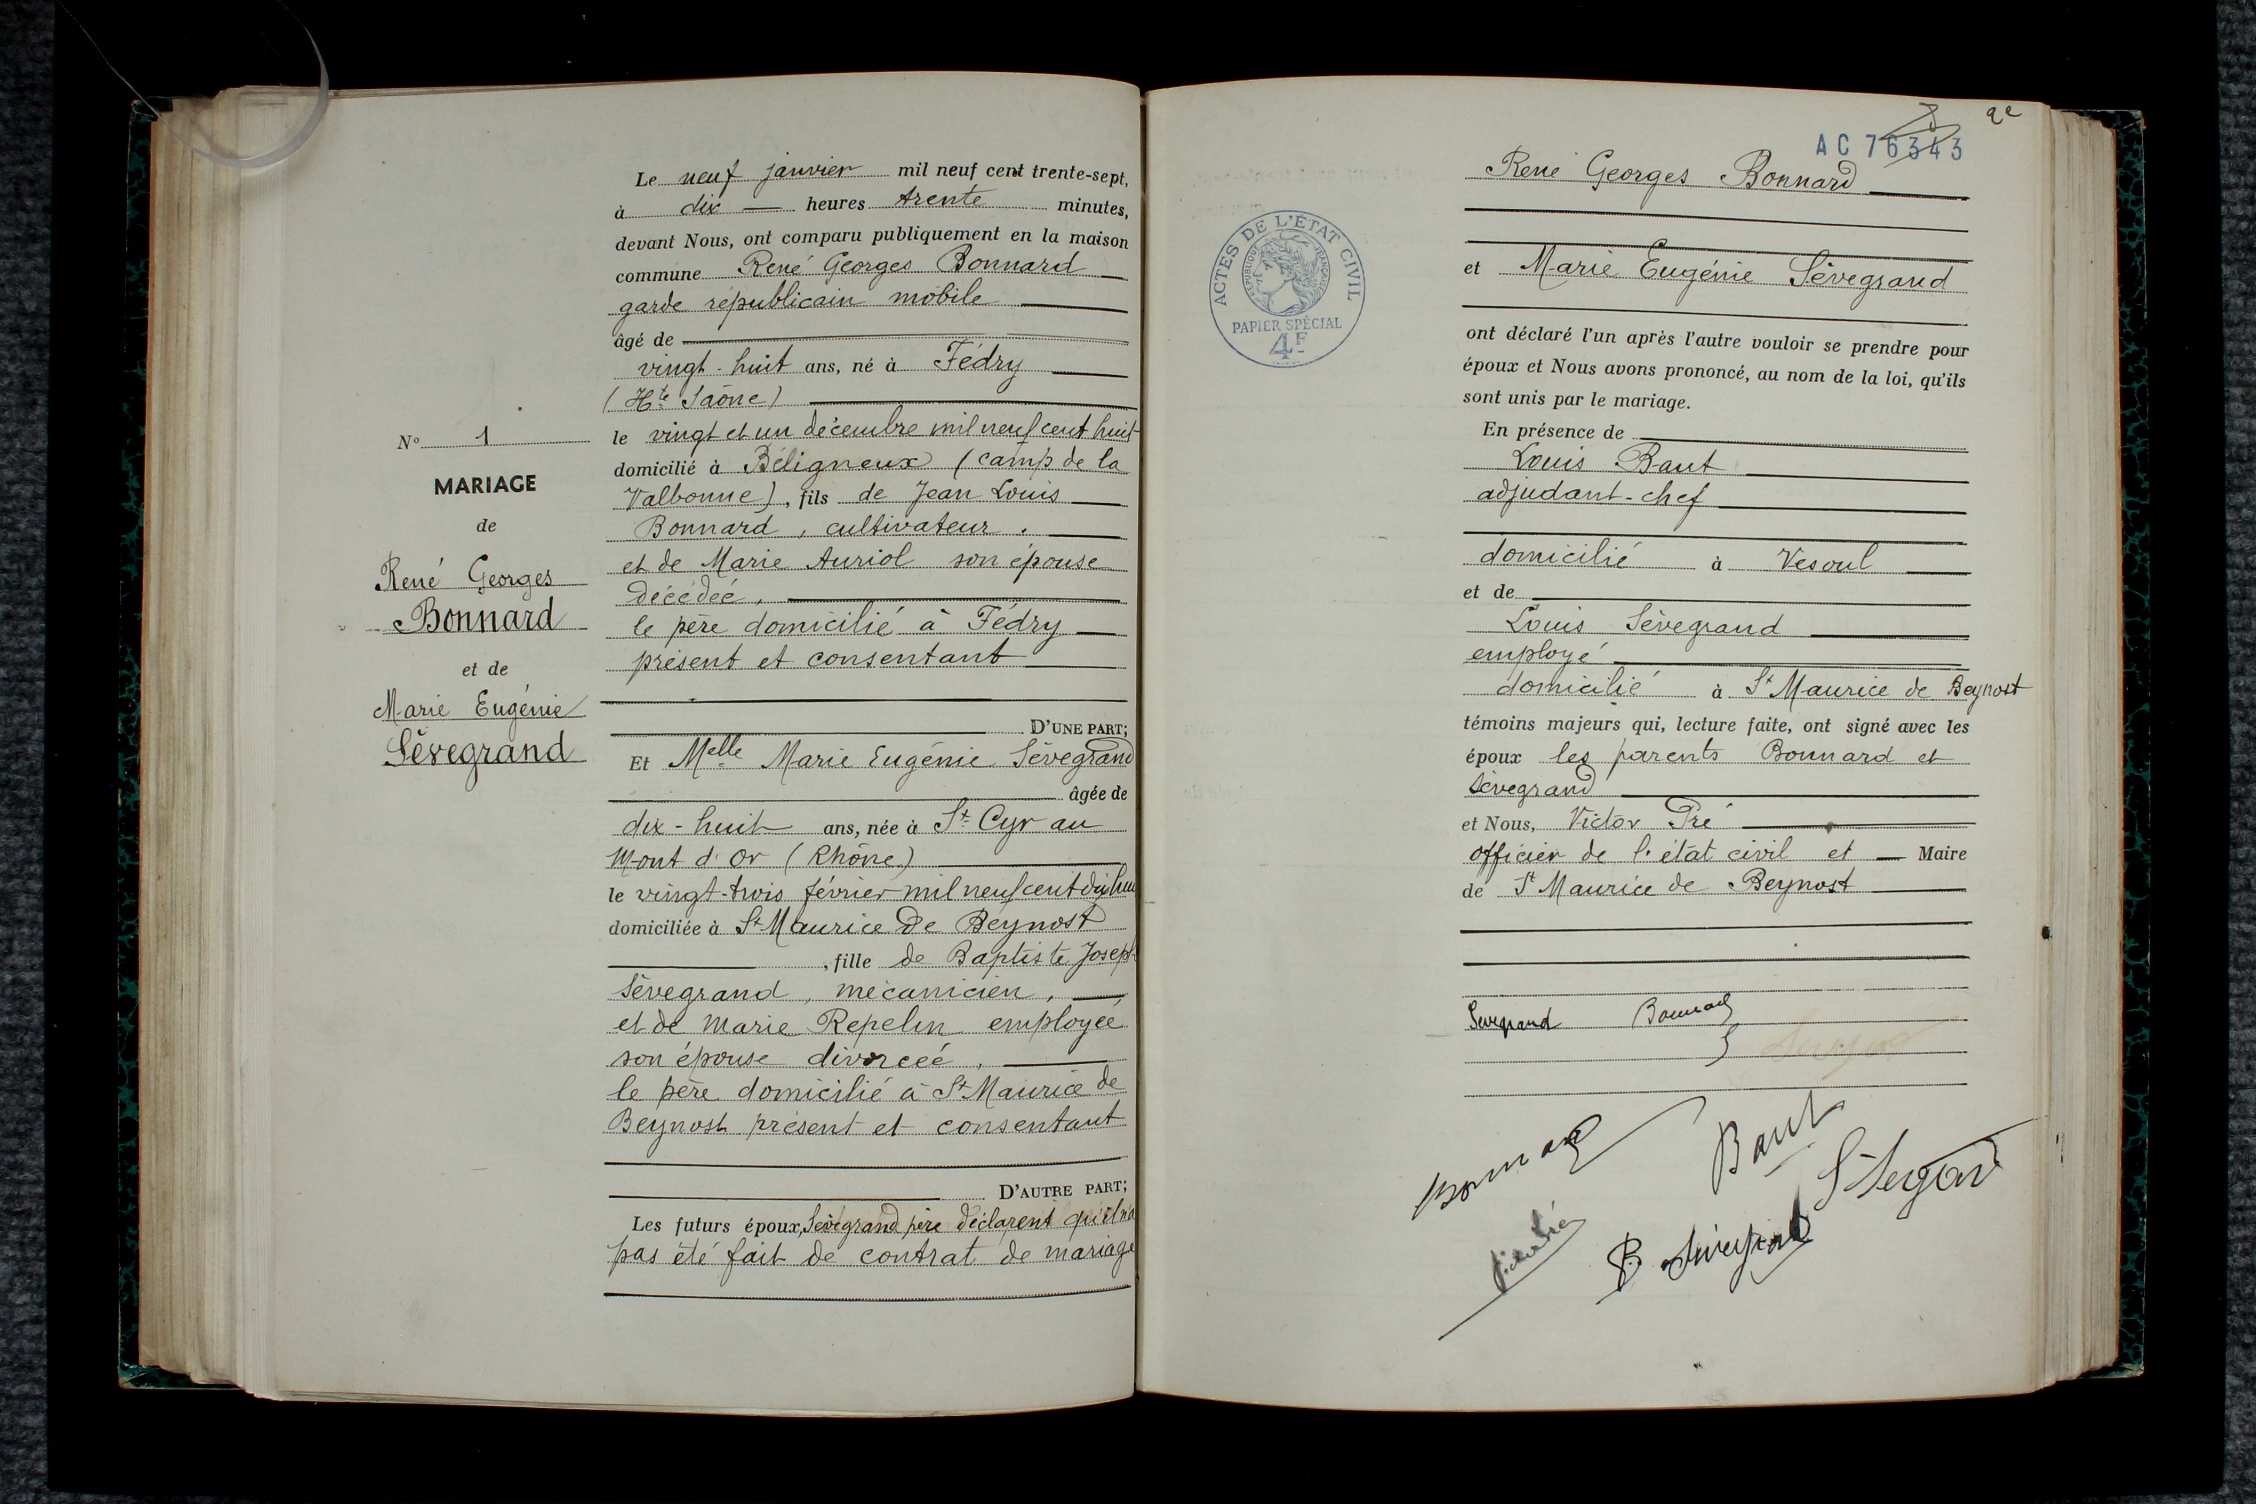 Le neuf janvier mil neuf cent trente-sept,
à dix heures trente minutes,
devant Nous, ont comparu publiquement en la maison
commune René Georges Bonnard
garde républicain mobile
âgé de
vingt-huit ans, né à Fédry
(Hte Saône)
N° 1
MARIAGE
de
René Georges
Bonnard
et de
Marie Eugénie
Sèvegrand
le vingt et un décembre mil neuf cent huit
domicilié à Béligneux (camp de la
Valbonne), fils de Jean Louis
Bonnard, cultivateur.
et de Marie Auriol son épouse
décédée,
le père domicilié à Fédry
présent et consentant
D'UNE PART;
Et Melle Marie Eugénie Sèvegrand
âgée de
dix-huit ans, née à St Cyr au
Mont d'Or (Rhône)
le vingt-trois février mil neuf cent dix huit
domiciliée à St Maurice de Beynost
, fille de Baptiste Joseph
Sèvegrand, mécanicien,
et de Marie Repelin employée
son épouse divorcée,
le père domicilié à St Maurice de
Beynost présent et consentant
D'AUTRE PART;
Les futurs époux, Sèvegrand père déclarent qu'il n'a
pas été fait de contrat de mariage
ACTES DE L'ÉTAT CIVIL
RÉPUBLIQUE FRANÇAISE
PAPIER SPÉCIAL
4F
2e
AC 76343
René Georges Bonnard
et Marie Eugénie Sèvegrand
ont déclaré l'un après l'autre vouloir se prendre pour
époux et Nous avons prononcé, au nom de la loi, qu'ils
sont unis par le mariage.
En présence de
Louis Baut
adjudant-chef
domicilié à Vesoul
et de
Louis Sèvegrand
employé
domicilié à St Maurice de Beynost
témoins majeurs qui, lecture faite, ont signé avec les
époux les parents Bonnard et
Sèvegrand
et Nous, Victor Pré
officier de l'état civil et Maire
de St Maurice de Beynost
Sevegrand Bonnard
Bonnard Baut